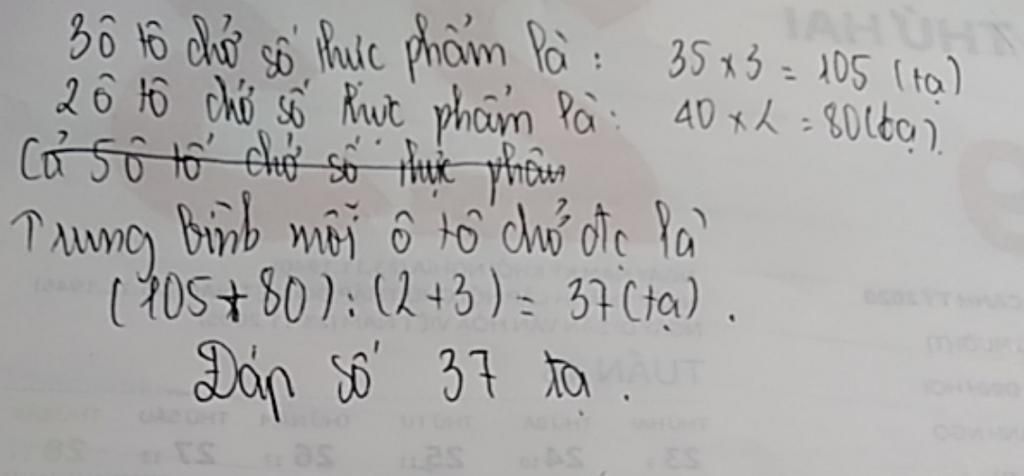 3 ô tô chở số thực phẩm là: 35 x 3 = 105 (tạ)
2 ô tô chở số thực phẩm là: 40 x 2 = 80 (tạ).
Cả 5 ô tô chở số thực phẩm
Trung bình mỗi ô tô chở đc là
(105 + 80) : (2 + 3) = 37 (tạ).
Đáp số 37 tạ.
THỨ HAI
9
TUẦN
23 24 25 26 27 28